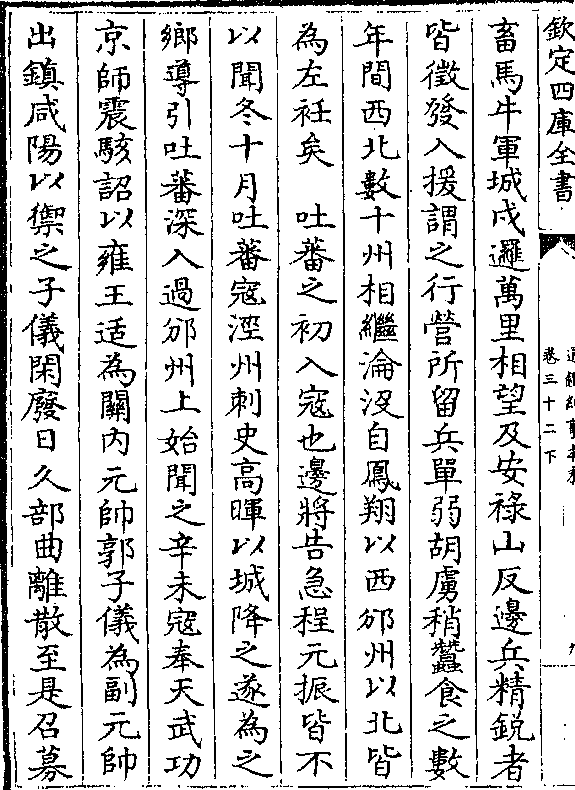 欽定四庫全書
通鑑紀事本末
卷三十二下
畜馬牛軍城戍邏萬里相望及安祿山反邊兵精鋭者
皆徵發入援謂之行營所留兵單弱胡虜稍蠶食之數
年間西北數十州相繼淪沒自鳳翔以西邠州以北皆
為左衽矣　吐蕃之初入寇也邊將告急程元振皆不
以聞冬十月吐蕃寇涇州刺史高暉以城降之遂為之
鄉導引吐蕃深入過邠州上始聞之辛未寇奉天武功
京師震駭詔以雍王适為關內元帥郭子儀為副元帥
出鎮咸陽以禦之子儀閑廢日久部曲離散至是召募